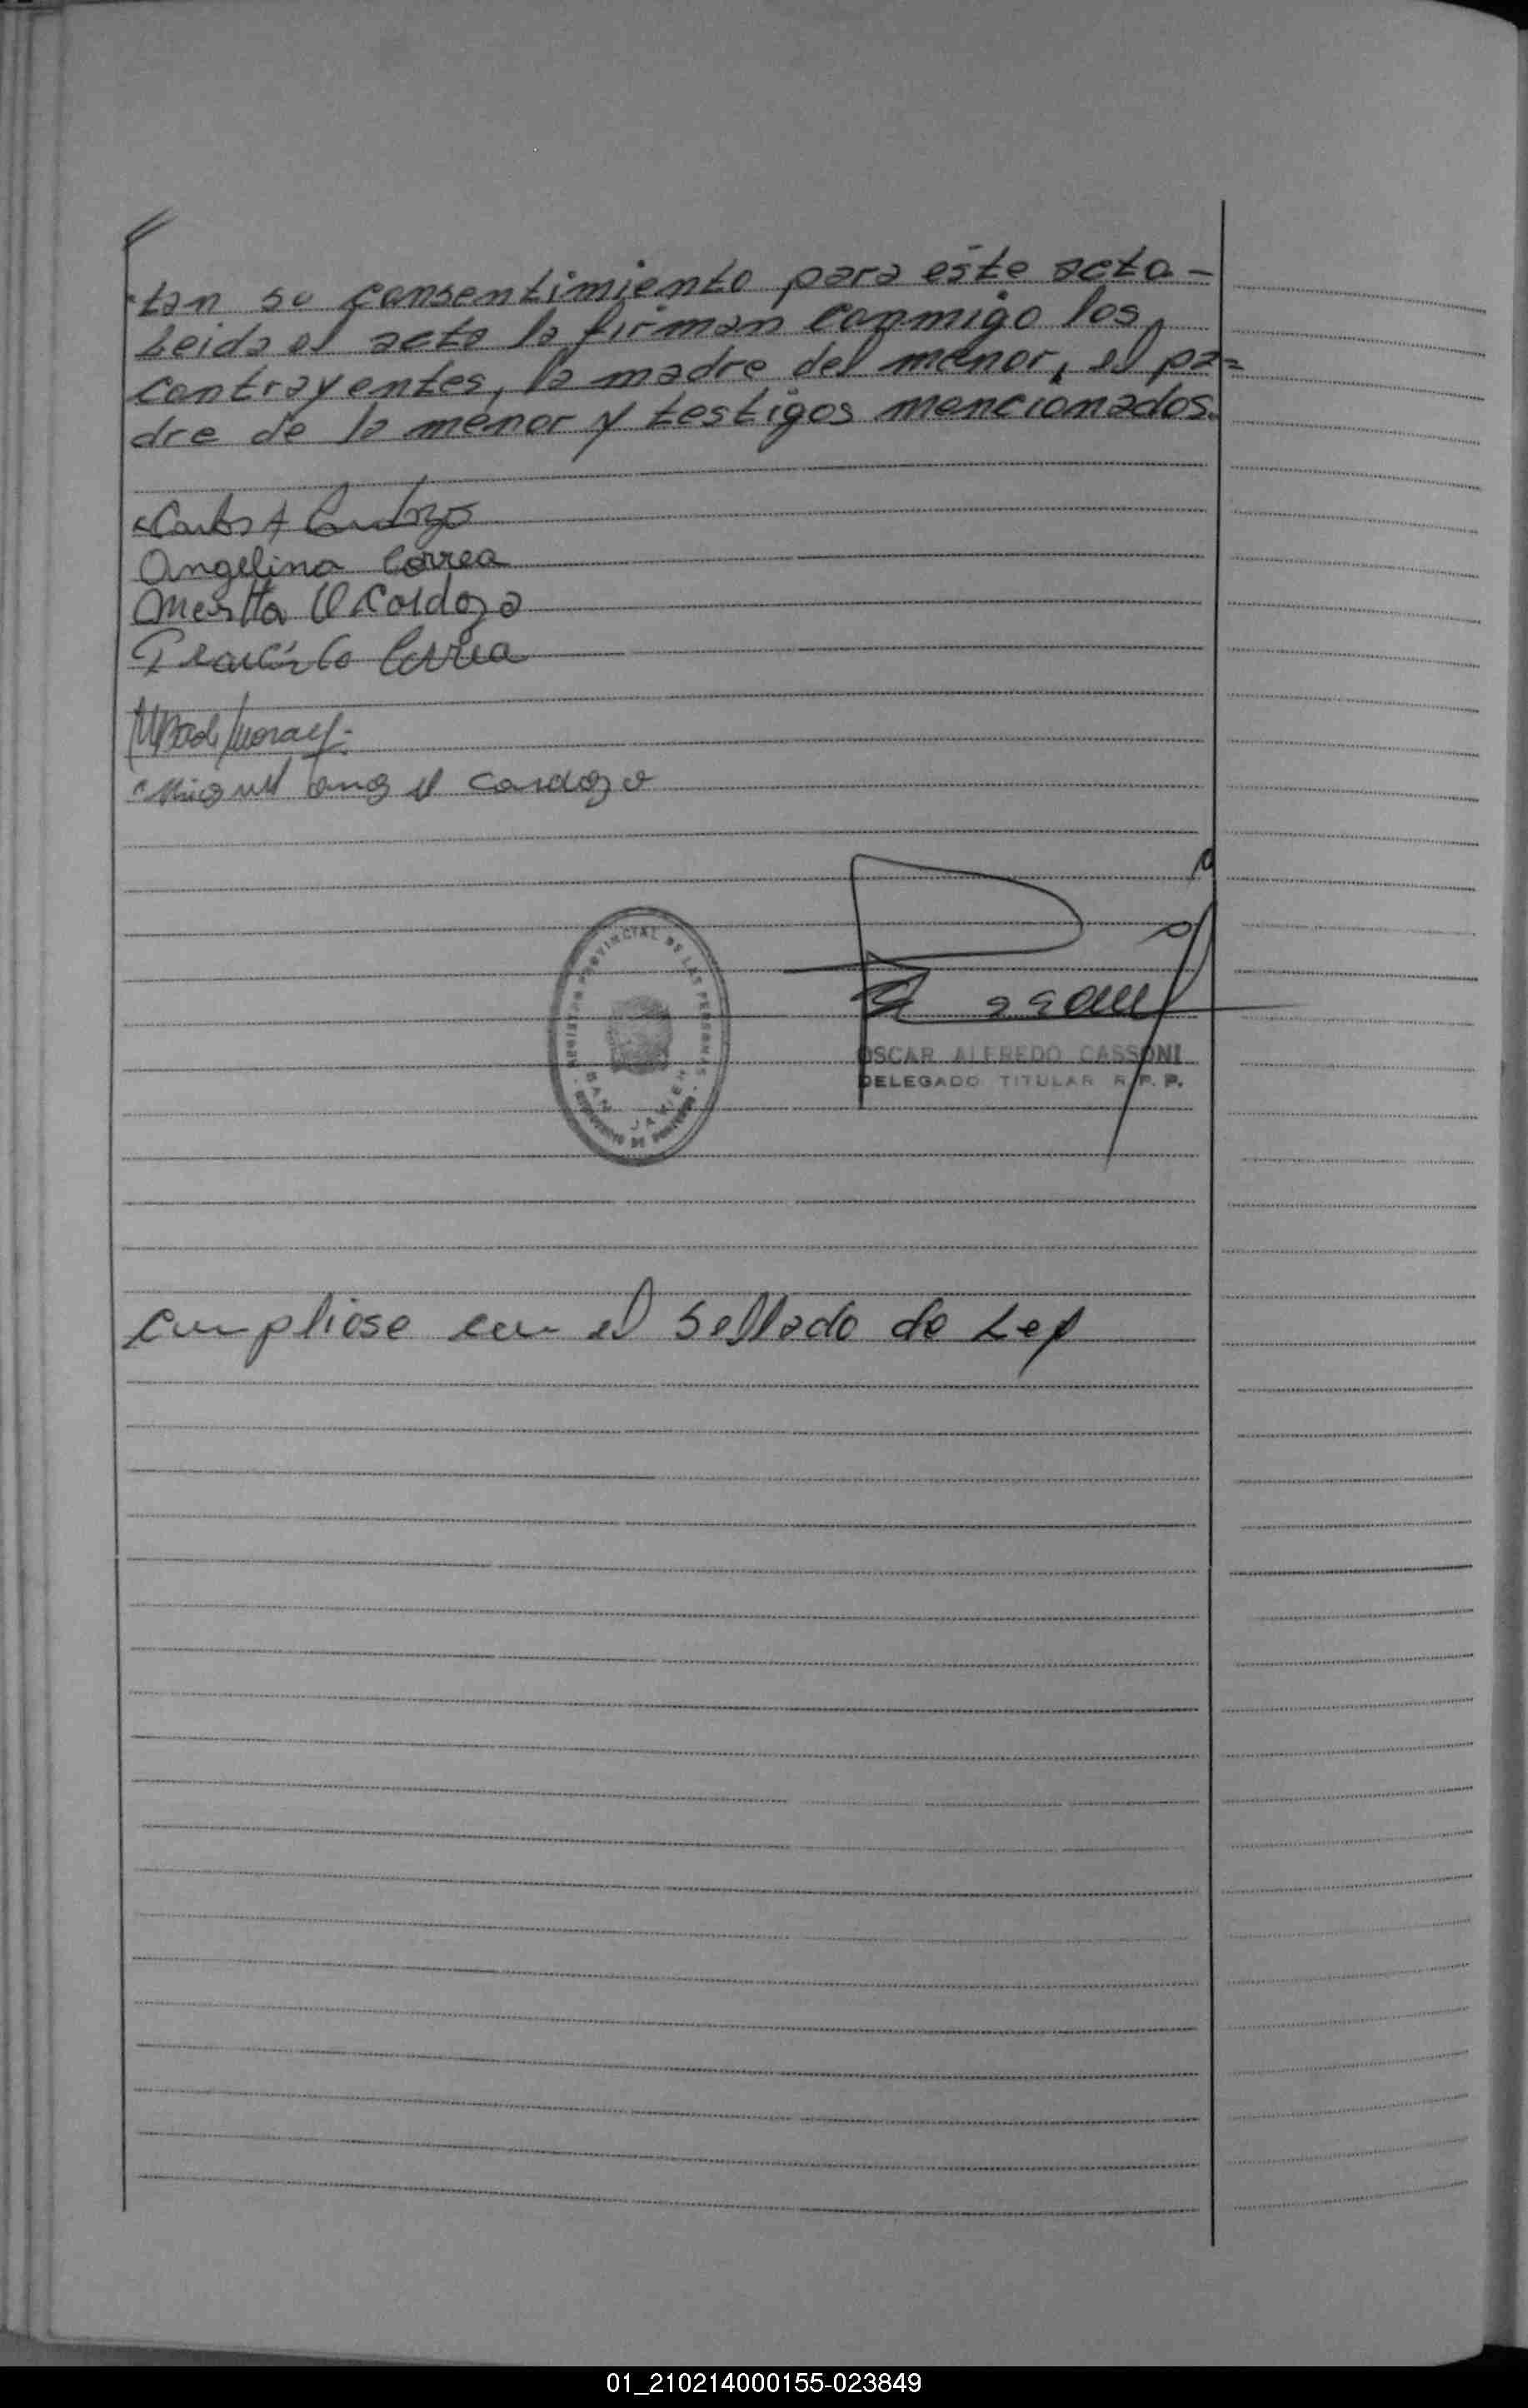 tan su consentimiento para este acto-
Leida el acta la firman conmigo los
contrayentes, la madre del menor, el pa=
dre de la menor y testigos mencionados.
Carlos A Cardozo
Angelina Correa
Cardozo
Correa
Miguel Angel Cardozo
PROVINCIAL DE LAS PERSONAS
SAN JAVIER
OSCAR ALFREDO CASSONI
DELEGADO TITULAR R.P.P.
Cumpliose con el Sellado de Ley
01_210214000155-023849